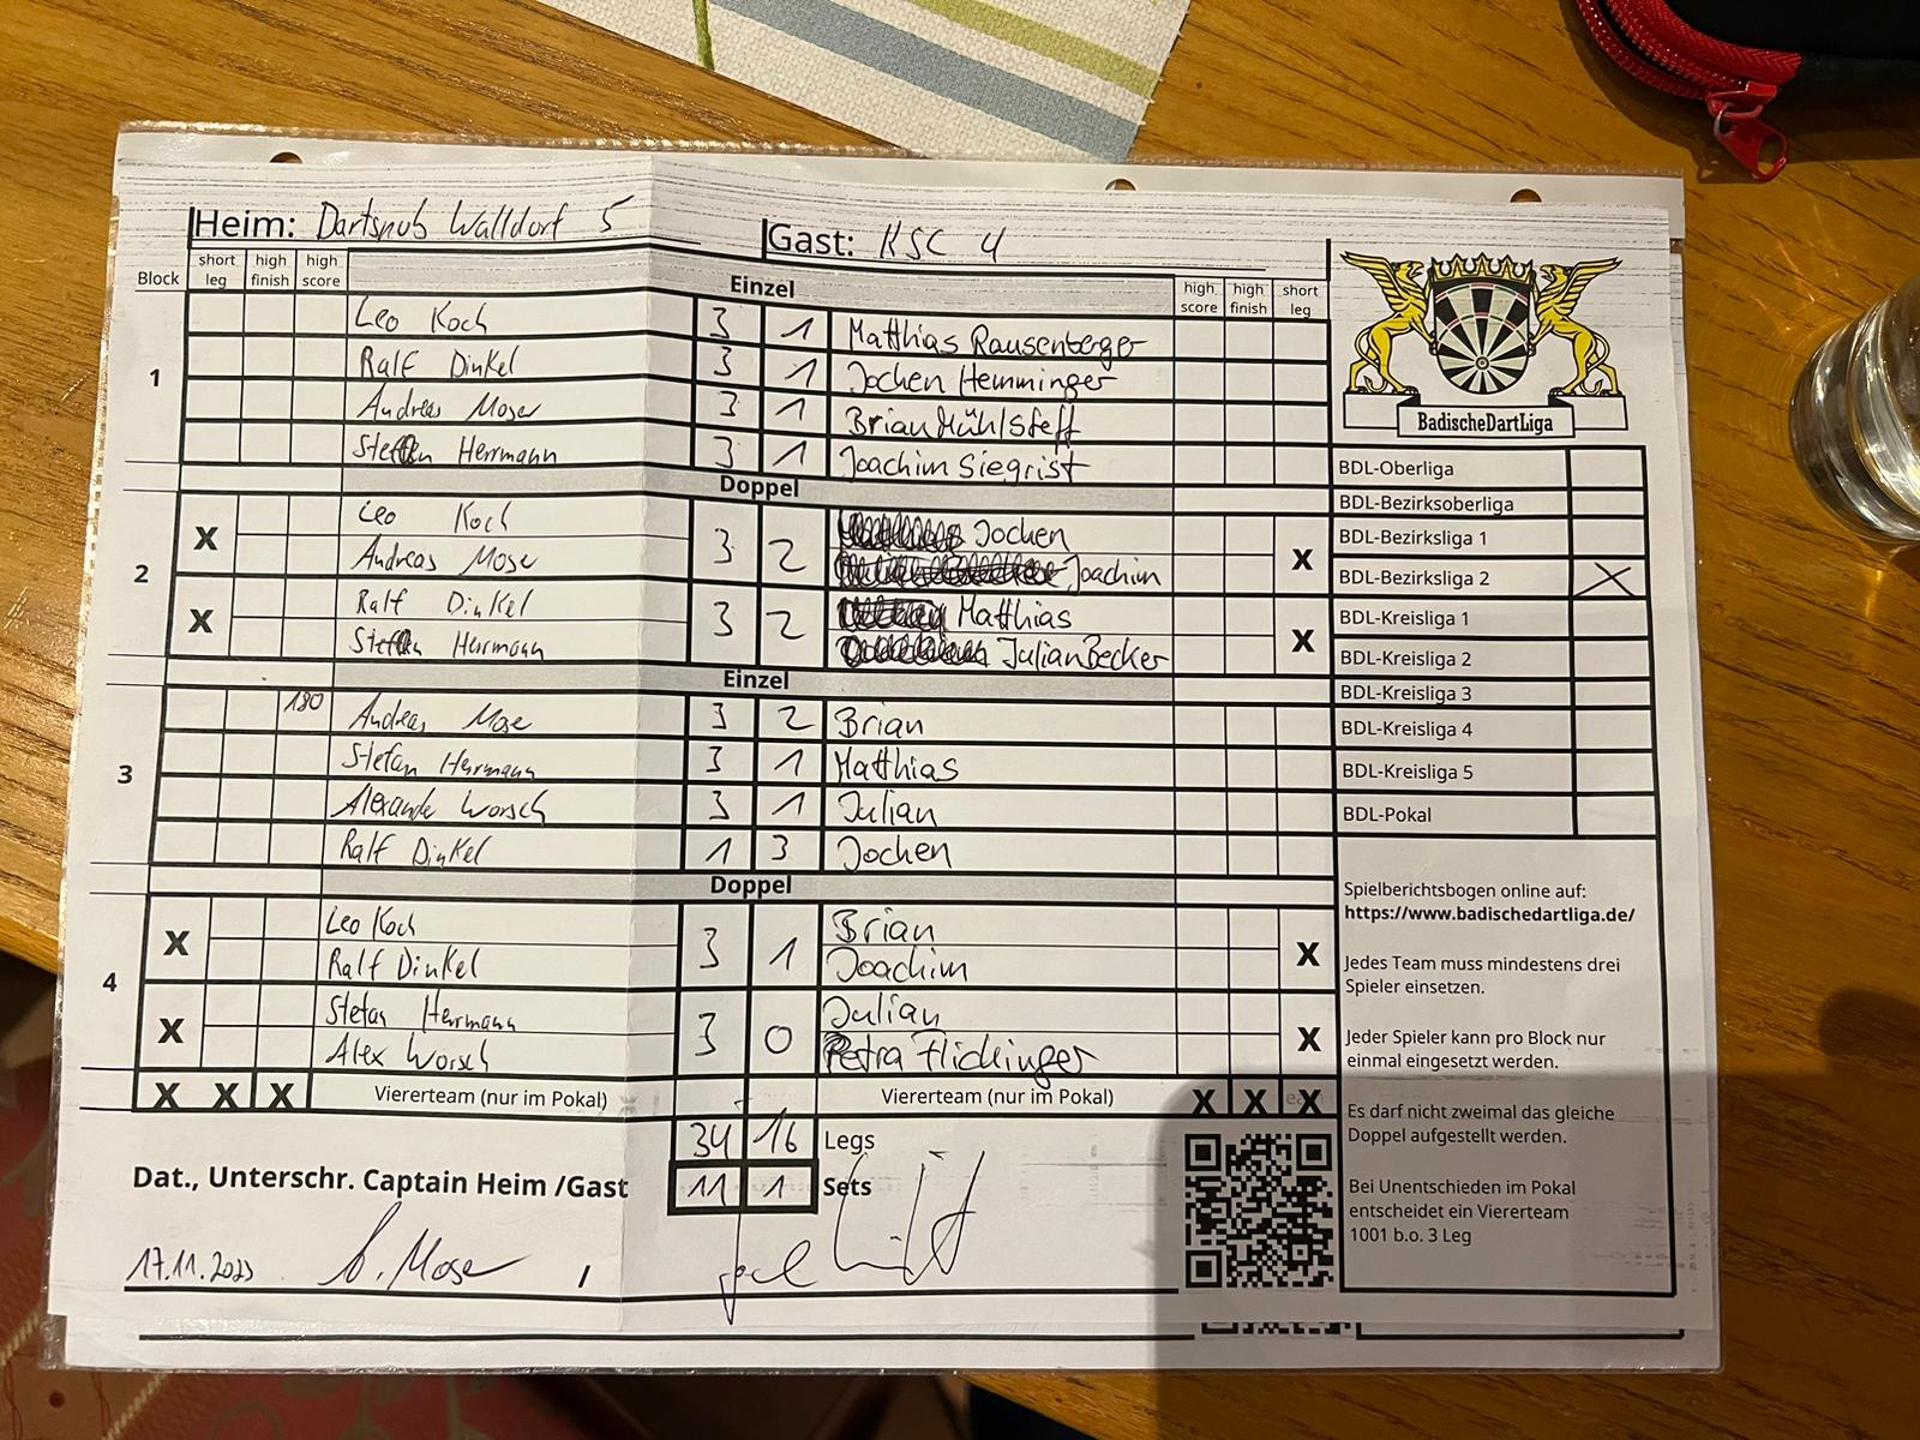 Heim: Dartspub Walldorf 5 Gast: KSC 4
Block short leg high finish high score Einzel high score high finish short leg
1
Leo Koch 3 1 Matthias Rausenberger
Ralf Dinkel 3 1 Jochen Hemminger
Andreas Moser 3 1 Brian Mühlsteff
Steffen Herrmann 3 1 Joachim Siegrist
Doppel
2
X Leo Koch 3 2 Jochen X
Andreas Mose Joachim
X Ralf Dinkel 3 2 Matthias X
Steffen Herrmann Julian Becker
Einzel
3
180 Andreas Mose 3 2 Brian
Stefan Herrmann 3 1 Matthias
Alexande Worsch 3 1 Julian
Ralf Dinkel 1 3 Jochen
Doppel
4
X Leo Koch 3 1 Brian X
Ralf Dinkel Joachim
X Stefan Herrmann 3 0 Julian X
Alex Worsch Petra Flickinger
X X X Viererteam (nur im Pokal) Viererteam (nur im Pokal) X X X
34 16 Legs
Dat., Unterschr. Captain Heim /Gast 11 1 Sets
17.11.2023 A. Mose /
BadischeDartLiga
BDL-Oberliga
BDL-Bezirksoberliga
BDL-Bezirksliga 1
BDL-Bezirksliga 2 X
BDL-Kreisliga 1
BDL-Kreisliga 2
BDL-Kreisliga 3
BDL-Kreisliga 4
BDL-Kreisliga 5
BDL-Pokal
Spielberichtsbogen online auf:
https://www.badischedartliga.de/
Jedes Team muss mindestens drei
Spieler einsetzen.
Jeder Spieler kann pro Block nur
einmal eingesetzt werden.
Es darf nicht zweimal das gleiche
Doppel aufgestellt werden.
Bei Unentschieden im Pokal
entscheidet ein Viererteam
1001 b.o. 3 Leg